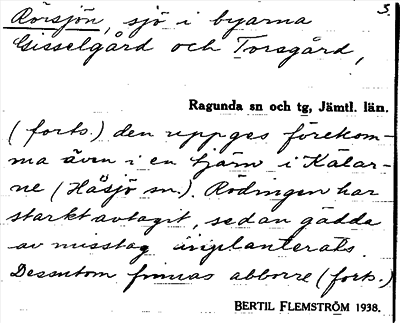 Rörsjön, sjö i byarna
3.
Gisselgård och Torsgård,
Ragunda sn och tg, Jämtl. län.
(forts.) den uppges förekom-
ma även i en tjärn i Kälar-
ne (Håsjö sn.). Rödingen har
starkt avtagit, sedan gädda
av misstag inplanterats.
Dessutom finnas abborre (forts.)
BERTIL FLEMSTRÖM 1938.